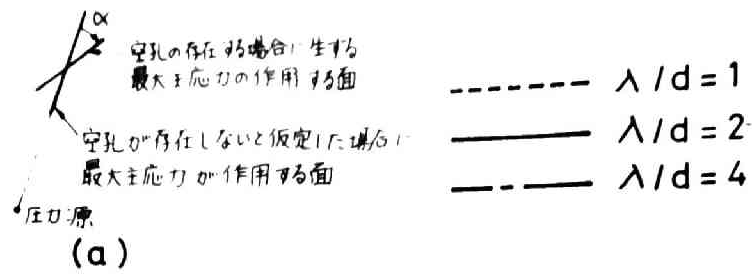 α
空孔の存在する場合に生ずる
最大主応力の作用する面
空孔が存在しないと仮定した場合に
最大主応力が作用する面
圧力源
(a)
λ/d=1
λ/d=2
λ/d=4